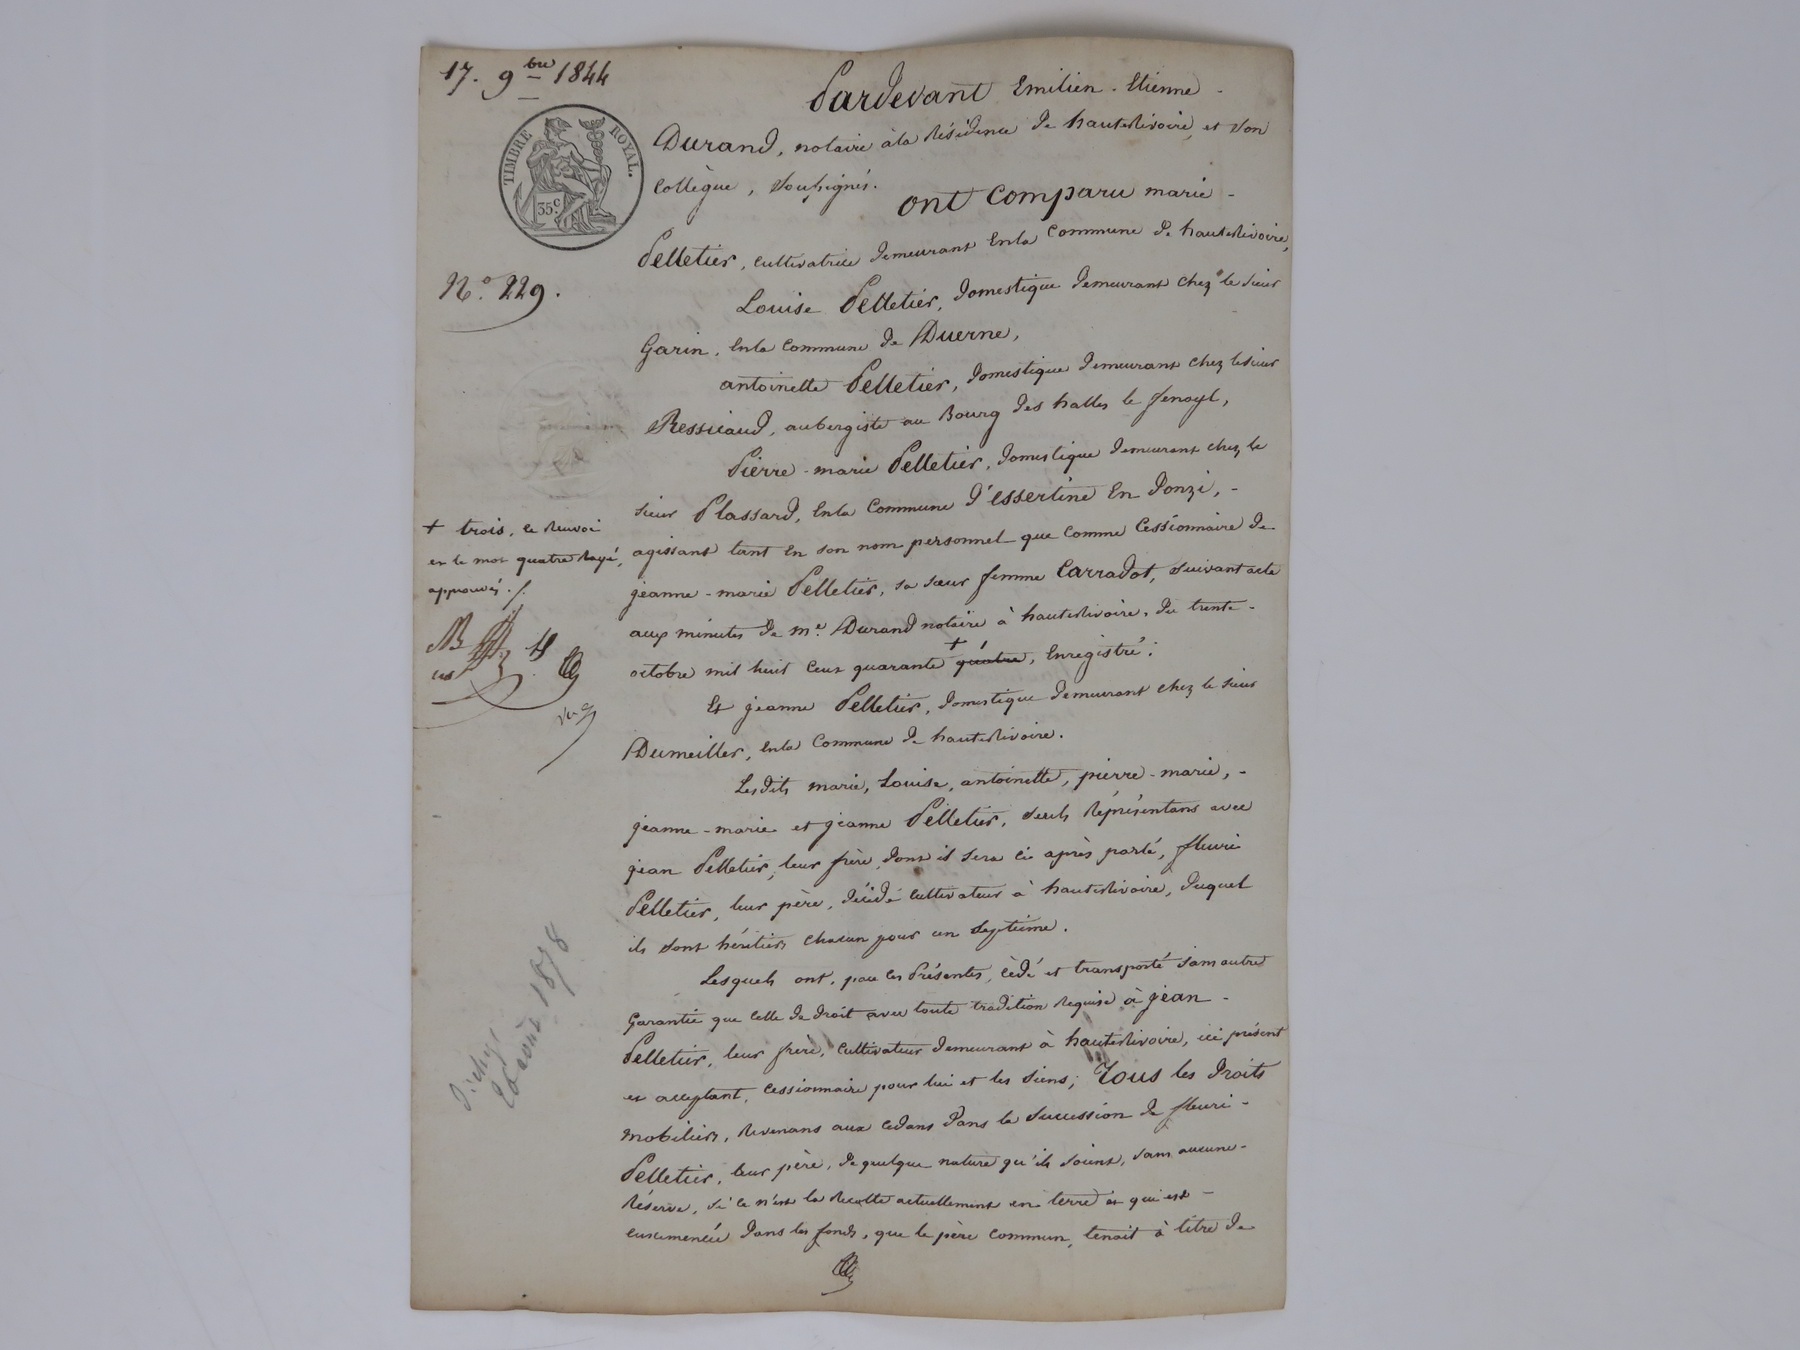 17. 9bre 1844
TIMBRE ROYAL.
35c
No. 229.
Pardevant Emilien - Etienne -
Durand, notaire à la Résidence de hauterivoire, et son
Collègue, soussignés.
ont comparu marie -
Pelletier, cultivatrice demeurant en la commune de hauterivoire,
Louise Pelletier, domestique demeurant chez le sieur
Garin, en la commune de Duerne,
antoinette Pelletier, domestique demeurant chez le sieur
Ressicaud, aubergiste au Bourg des halles le fenoyl,
Pierre - marie Pelletier, domestique demeurant chez le
sieur Plassard, en la commune d'essertine en Donzi, -
agissant tant en son nom personnel que comme cessionnaire de
jeanne - marie Pelletier, sa sœur femme Carradot, suivant acte
aux minutes de me. Durand notaire à hauterivoire, du trente -
octobre mil huit cent quarante + quatre, enregistré:
Et jeanne Pelletier, domestique demeurant chez le sieur
Dumeiller, en la commune de hauterivoire.
Lesdits marie, Louise, antoinette, pierre - marie, -
jeanne - marie et jeanne Pelletier, seuls Représentans avec
jean Pelletier, leur frère, dont il sera ci après parlé, fleuri
Pelletier, leur père, décédé cultivateur à hauterivoire, duquel
ils sont héritiers chacun pour un septième.
Lesquels ont, par ces Présentes, cédé et transporté sans autre
Garantie que celle de droit avec toute tradition Requise à jean -
Pelletier, leur frère, cultivateur demeurant à hauterivoire, ici présent
et acceptant, cessionnaire pour lui et les siens; Tous les droits
mobiliers, Revenans aux cedans dans la succession de fleuri -
Pelletier, leur père, de quelque nature qu'ils soient, sans aucune -
Réserve, si ce n'est la Recolte actuellement en terre et qui est -
ensemencée dans les fonds, que le père commun, tenait à titre de
+ trois, ce Renvoi
et le mot quatre Rayé,
approuvés ./.
20 août 1878